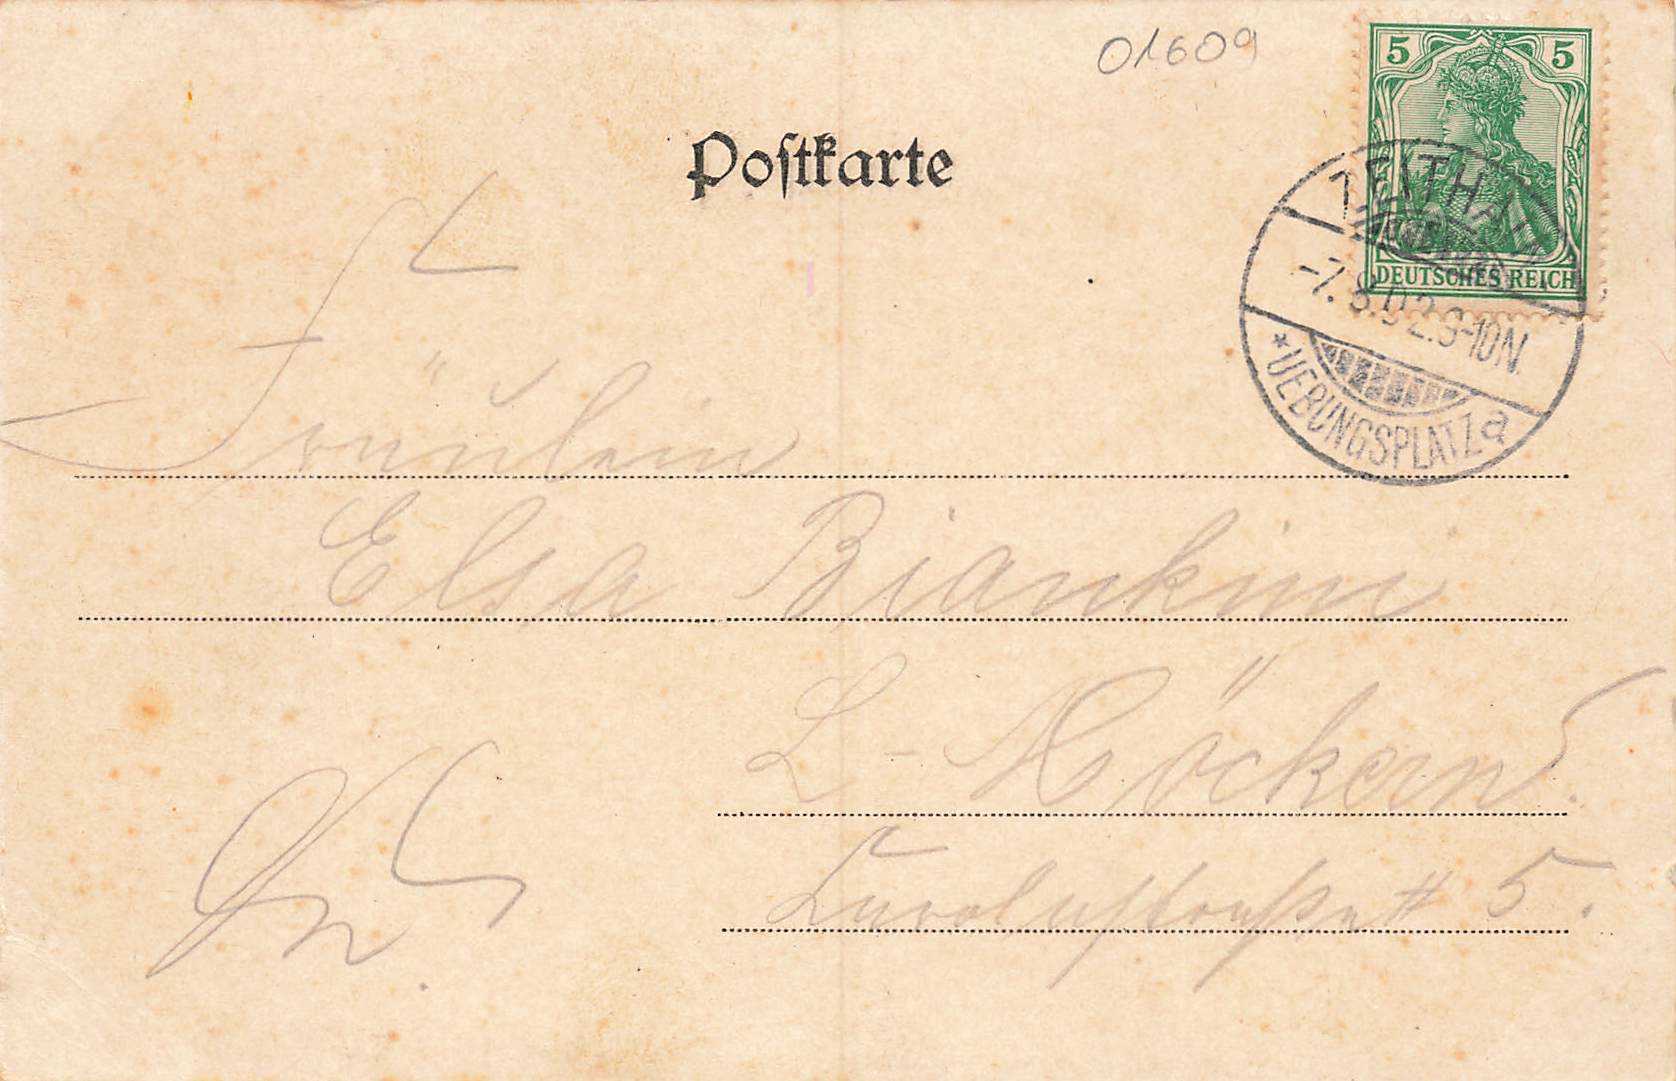 01609
Postkarte
5 5
DEUTSCHES REICH
ZEITHAIN
-7.8.02.9-10N.
*UEBUNGSPLATZ a
Fräulein
Elsa Biankini
L-Möckern
5.